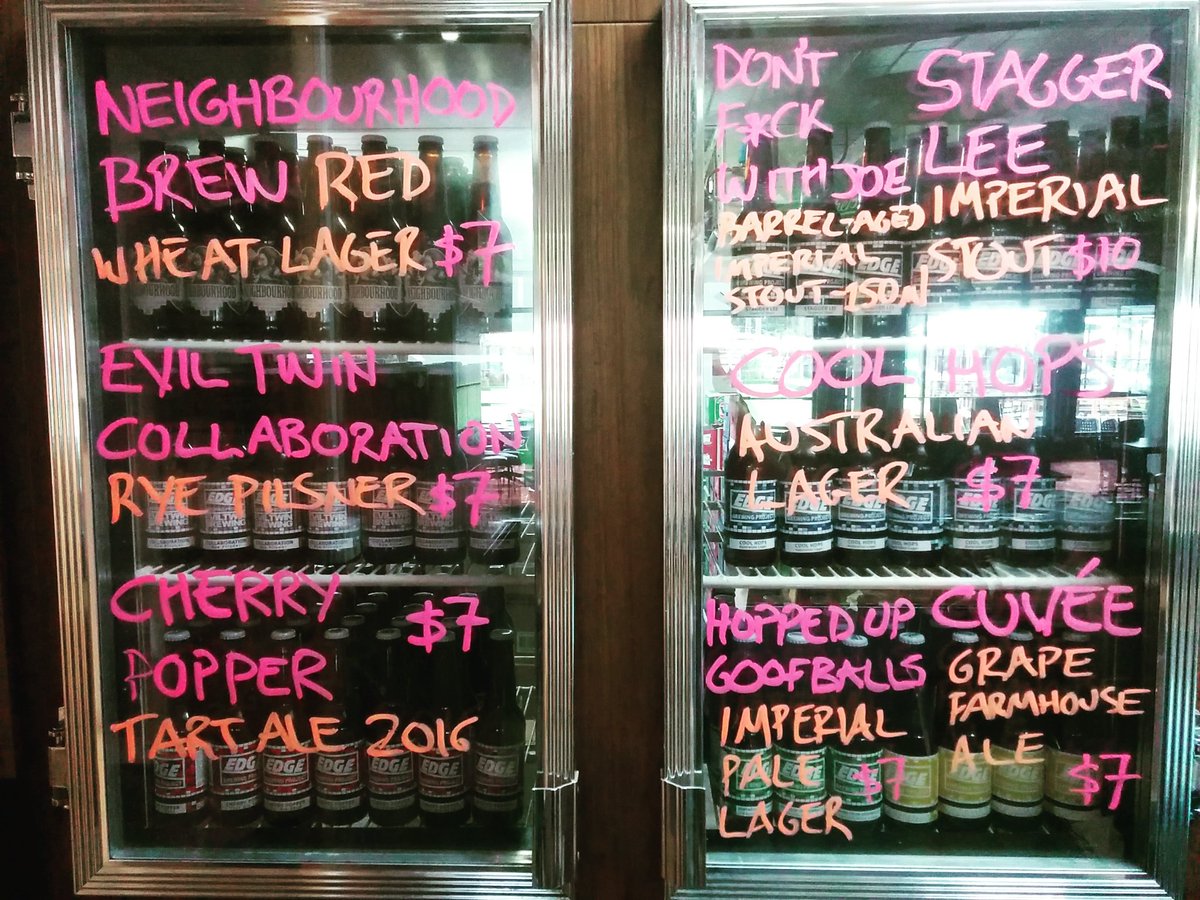 NEIGHBOURHOOD
BREW RED
WHEAT LAGER $7
EVIL TWIN
COLLABORATION
RYE PILSNER $7
CHERRY
POPPER
$7
TART ALE 2016
DON'T
F*CK
WITH JOE
BARREL-AGED
IMPERIAL
STOUT-
STAGGER
LEE
IMPERIAL
STOUT $10
COOL HOPS
AUSTRALIAN
LAGER $7
HOPPED UP
GOOFBALLS
IMPERIAL
PALE $7
LAGER
CUVÉE
GRAPE
FARMHOUSE
ALE $7
NEIGHBOURHOOD
EDGE
BREWING PROJECT
COLLABORATION
EDGE
EDGE
EDGE
EDGE
EDGE
BREWING PROJECT
COOL HOPS
EDGE
EDGE